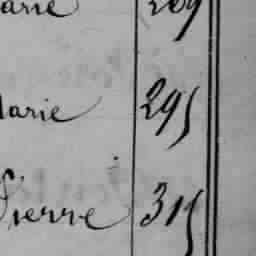 arie 209
Marie 295
Pierre 315